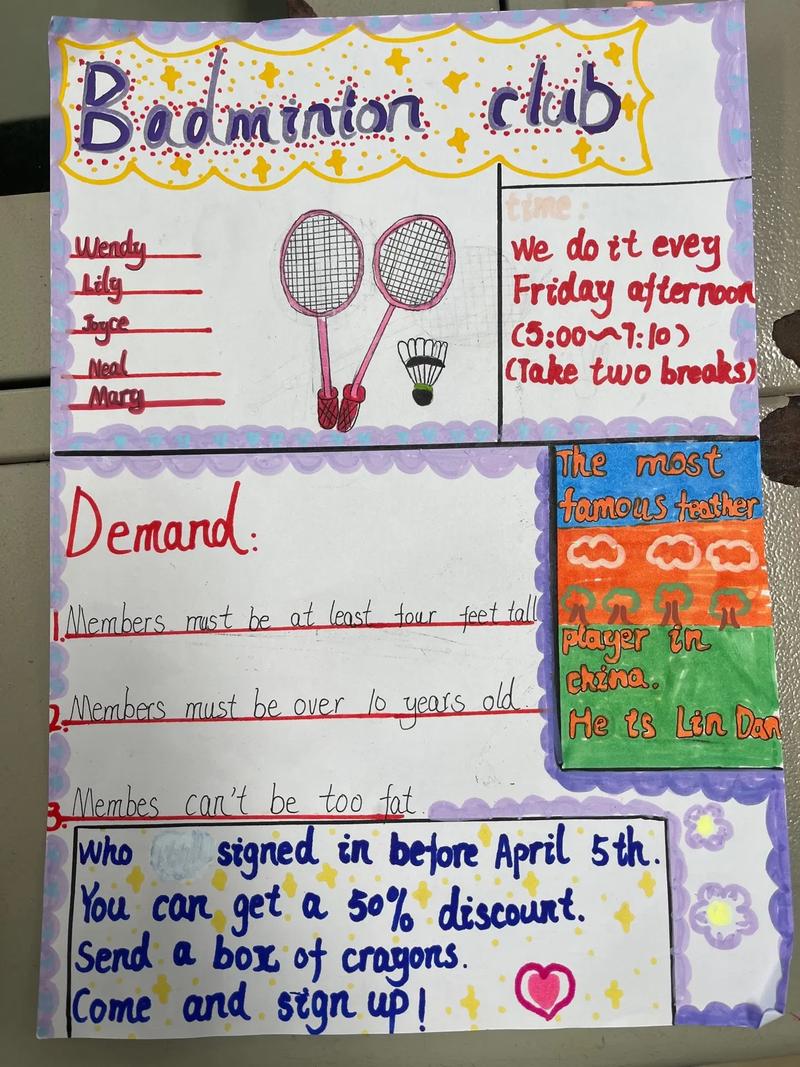 Badminton club
Wendy
Lily
Joyce
Neal
Mary
time:
We do it evey
Friday afternoon
(5:00~7:10)
(Take two breaks)
Demand:
1. Members must be at least four feet tall
2. Members must be over 10 years old.
3. Membes can't be too fat.
The most
famous feather
player in
china.
He is Lin Dan
Who signed in before April 5th.
You can get a 50% discount.
Send a box of crayons.
Come and sign up!